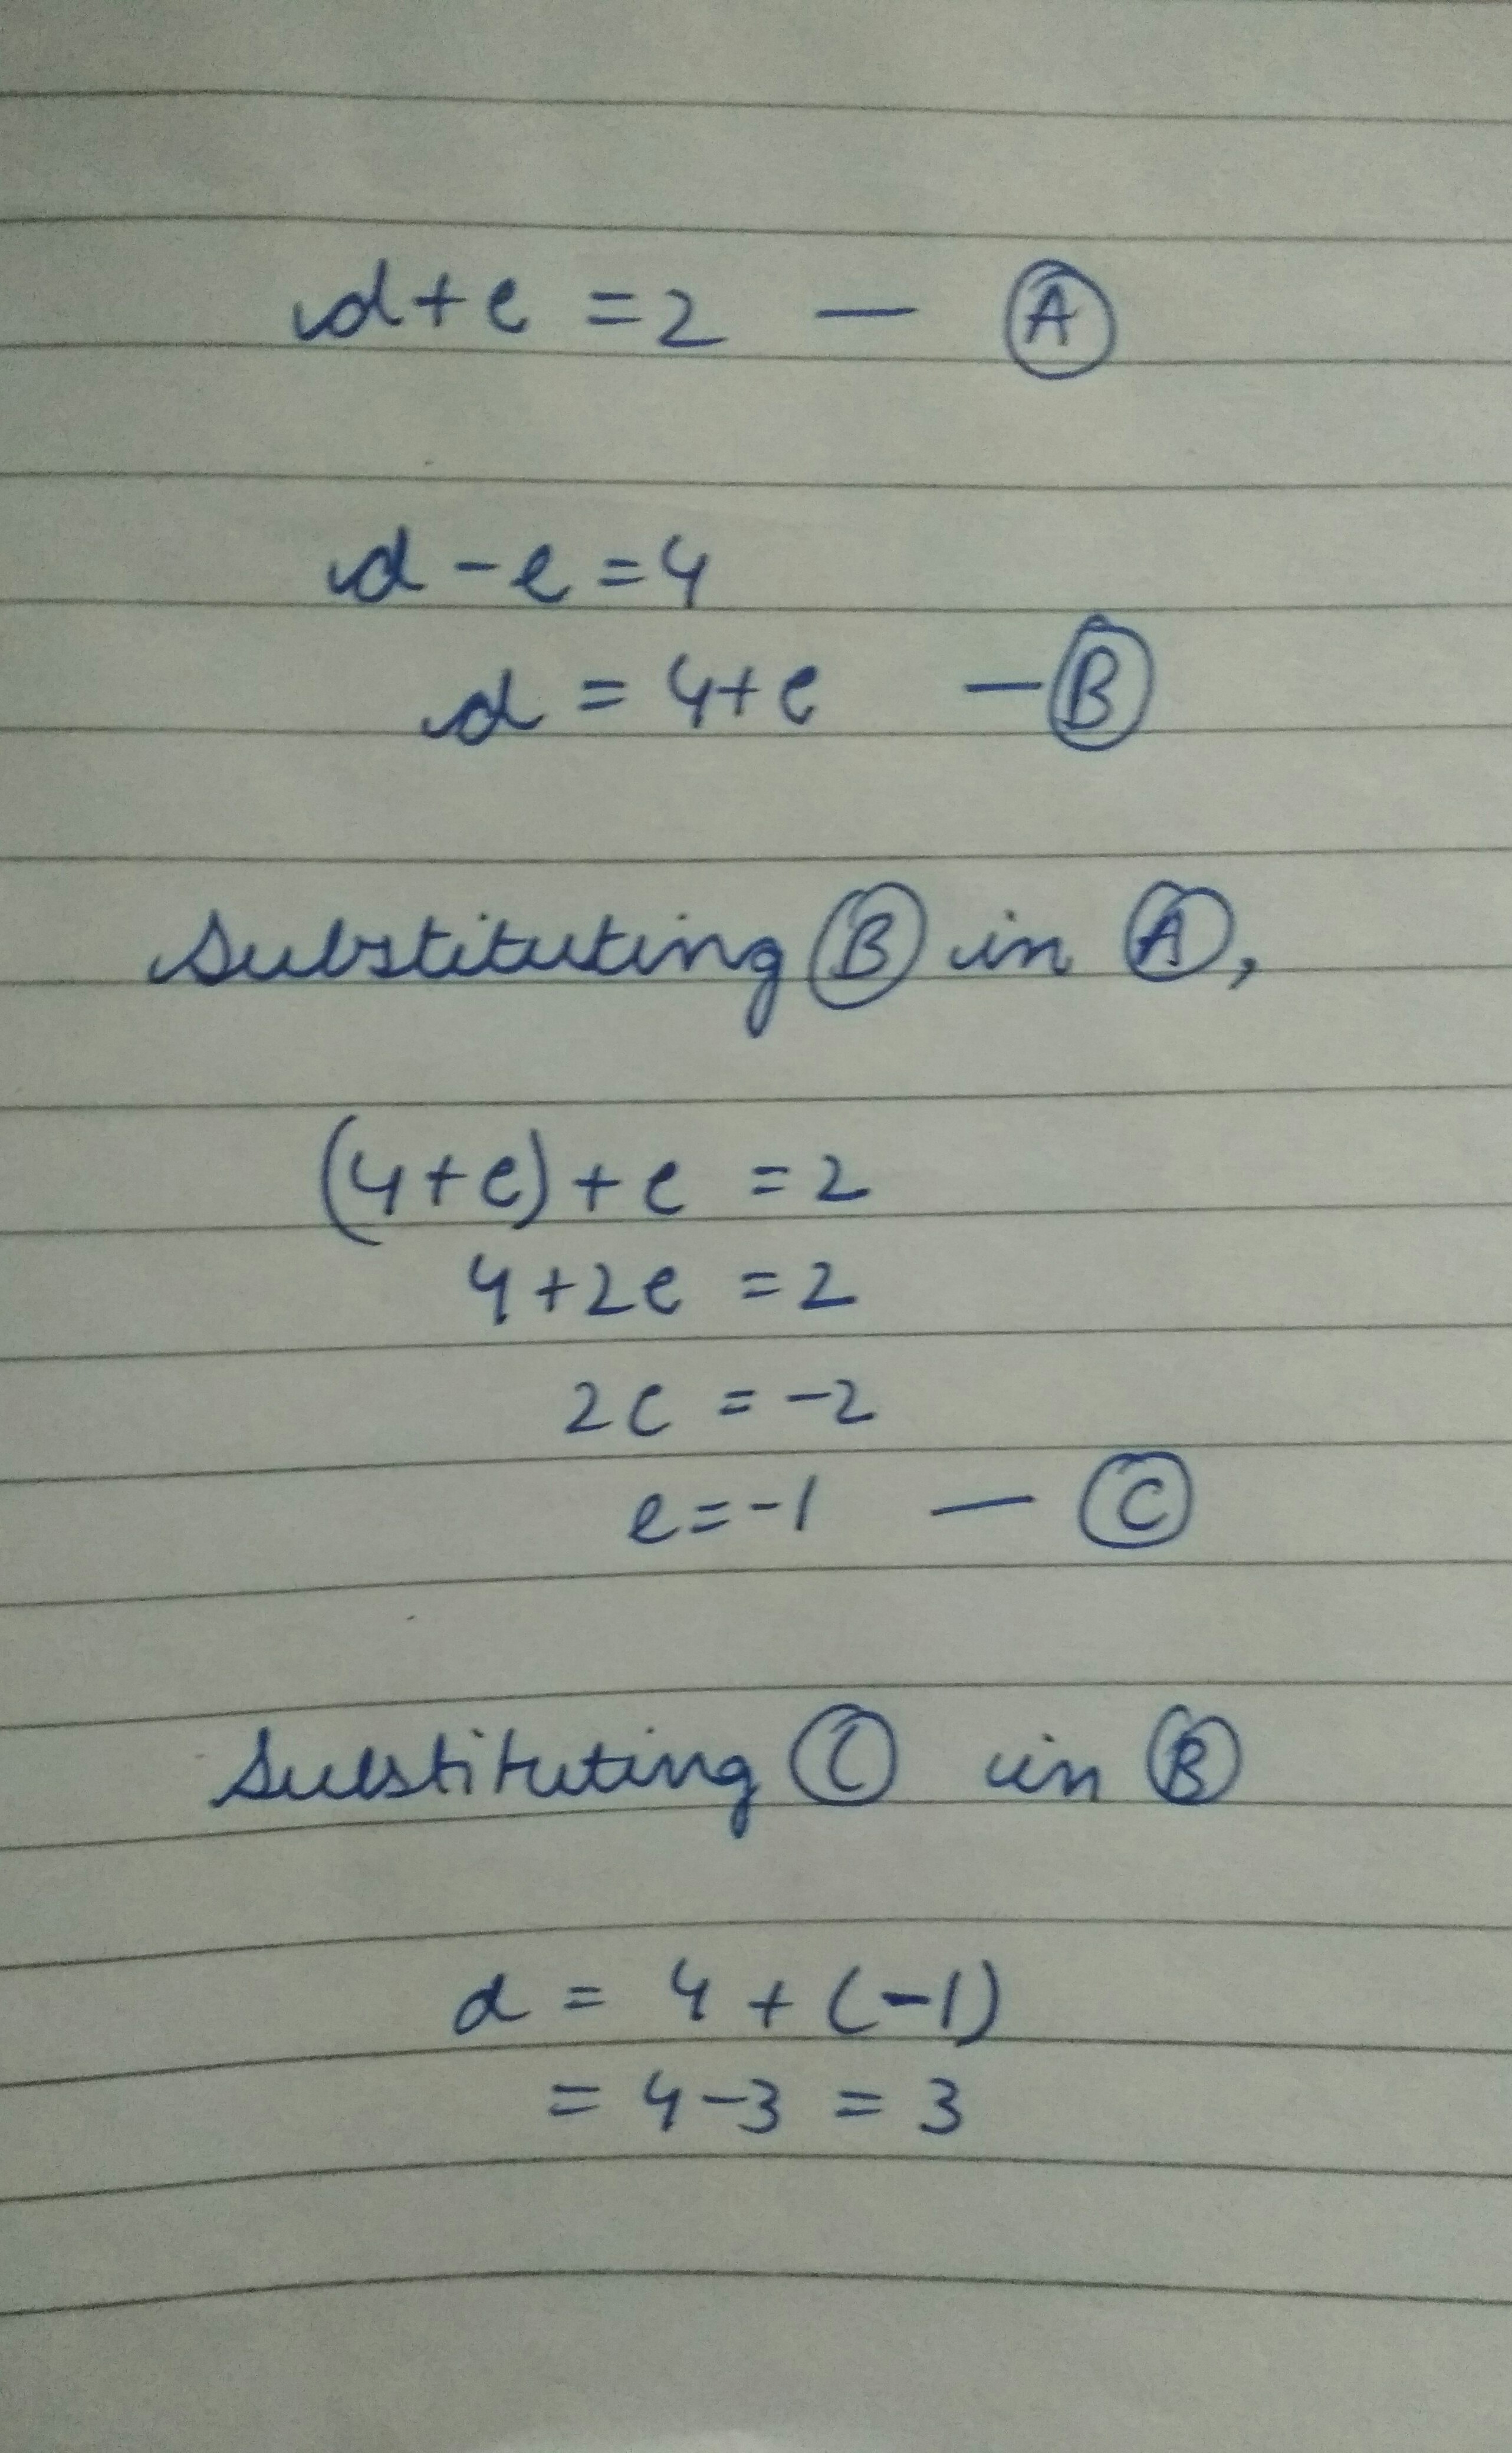 d+e = 2 — Ⓐ
d - e = 4
d = 4+e — Ⓑ
Substituting Ⓑ in Ⓐ,
(4+e)+e = 2
4+2e = 2
2e = -2
e = -1 — Ⓒ
Substituting Ⓒ in Ⓑ
d = 4 + (-1)
= 4-3 = 3